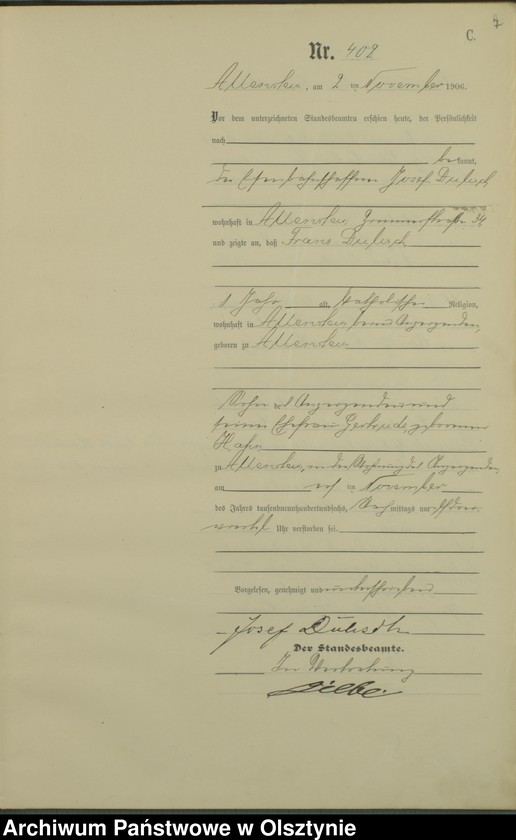 C. 7
Nr. 402
Allenstein, am 2 ten November 1906.
Vor dem unterzeichneten Standesbeamten erschien heute, der Persönlichkeit
nach
be kannt,
der Josef
wohnhaft in Allenstein, 34
und zeigte an, daß Franz
1 Jahr alt, katholischer Religion,
wohnhaft in Allenstein beim Anzeigenden,
geboren zu Allenstein
Sohn des Anzeigenden und
seiner Ehefrau Gertrude geborenen
Hahn
zu Allenstein, in der Wohnung des Anzeigenden,
am ten November
des Jahres tausendneunhundertundsechs, Nachmittags um
viertel Uhr verstorben sei.
Vorgelesen, genehmigt und unterschrieben
Josef
Der Standesbeamte.
In Vertretung
Archiwum Państwowe w Olsztynie